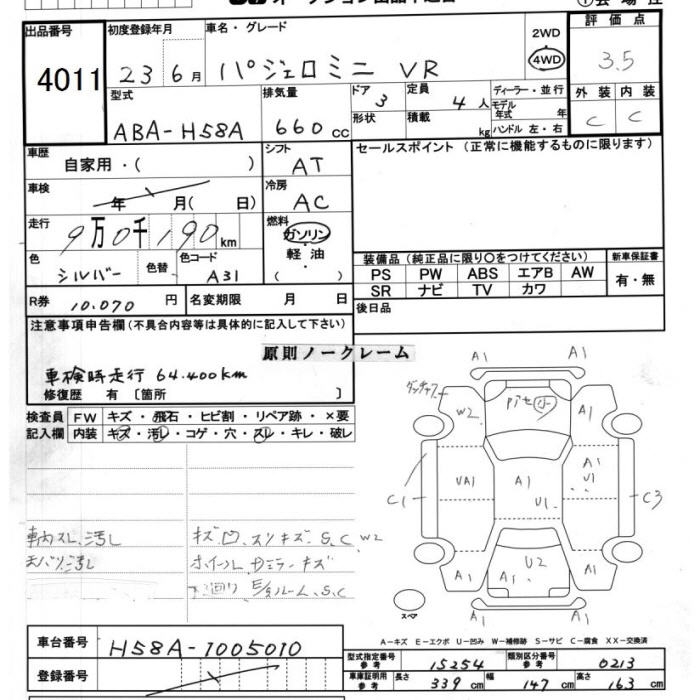 出品番号
4011
初度登録年月
23 6月
車名・グレード
パジェロミニ VR
2WD
4WD
評価点
3.5
外装 内装
C C
型式
ABA-H58A
排気量
660 cc
ドア
3
形状
定員
4人
積載
kg
ディーラー・並行
モデル年式 年
ハンドル 左・右
車歴
自家用・( )
シフト
AT
セールスポイント (正常に機能するものに限ります)
車検
年 月( 日)
冷房
AC
走行
9万0千190km
燃料
ガソリン・軽油・( )
色
シルバー
色替
色コード
A31
装備品 (純正品に限り○をつけてください)
新車保証書
PS PW ABS エアB AW
SR ナビ TV カワ
有・無
R券
10.070円
名変期限 月 日
後日品
注意事項申告欄 (不具合内容等は具体的に記入して下さい)
原則ノークレーム
車検時走行 64.400km
修復歴 有 〔箇所 〕
検査員記入欄
FW キズ・飛石・ヒビ割・リペア跡・×要
内装 キズ・汚レ・コゲ・穴・スレ・キレ・破レ
車内スレ、汚し
天バリ汚し
キズ凹、スリキズ、S、C W2
ホイール ガミラーキズ
下廻り E/gルーム、S、C
A1
A1
W2
A1
UA1
A1
A1
U1
U1
C1
C3
A1
U2
A1
A1
スペア
A-キズ E-エクボ U-凹み W-補修跡 S-サビ C-腐食 XX-交換済
車台番号
H58A-1005010
登録番号
型式指定番号 参考
15254
類別区分番号 参考
0213
車庫証明用 参考
長さ 339cm
幅 147cm
高さ 163cm